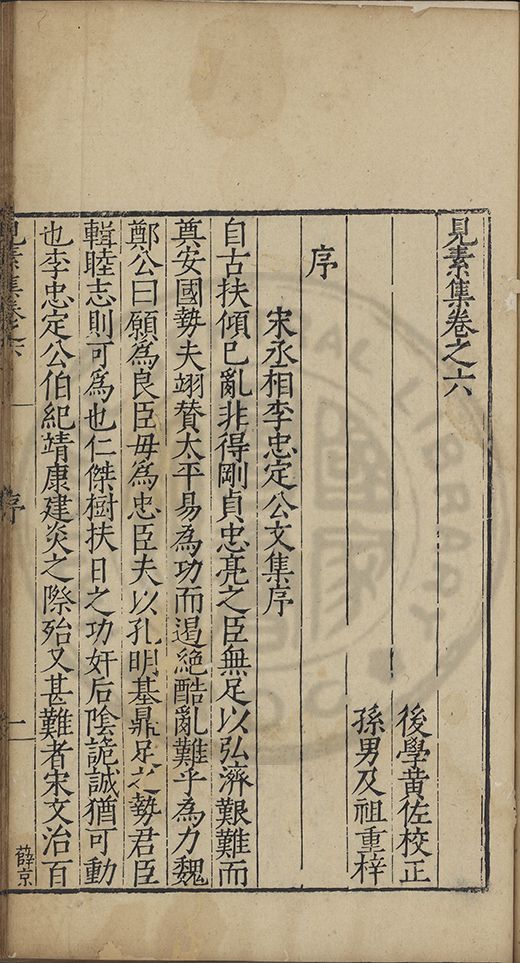 見素集卷之六
後學黃佐校正
孫男及祖重梓
序
宋丞相李忠定公文集序
自古扶傾已亂非得剛貞忠亮之臣無足以弘濟艱難而
奠安國勢夫翊賛太平易為功而遏絶酷亂難乎為力魏
鄭公曰願為良臣毋為忠臣夫以孔明基鼎足之勢君臣
輯睦志則可為也仁傑樹扶日之功奸后陰詭誠猶可動
也李忠定公伯紀靖康建炎之際殆又甚難者宋文治百
見素集卷六
序
一
薛京